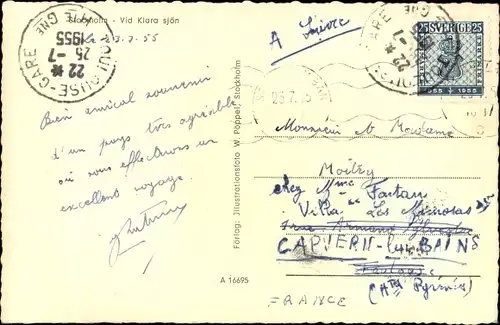 Stockholm - Vid Klara sjön
Le 23.7.55
Bien amical souvenir
d'un pays très agréable
où nous effectuons un
excellent voyage.
Förlag: Illustrationsfoto W. Pöppel, Stockholm
A 16695
TOULOUSE-GARE
22 *
25 -7
1955
HTE GNE
A suivre
25 SVERIGE 25
FRIMÄRKE
1855 1955
Monsieur et Madame
Moitey
chez Mme Fartau
Villa Les Mimosas
Rue Armand Sylvestre
CAPVERN-les-BAINS
Toulouse
(Htes Pyrénées)
FRANCE